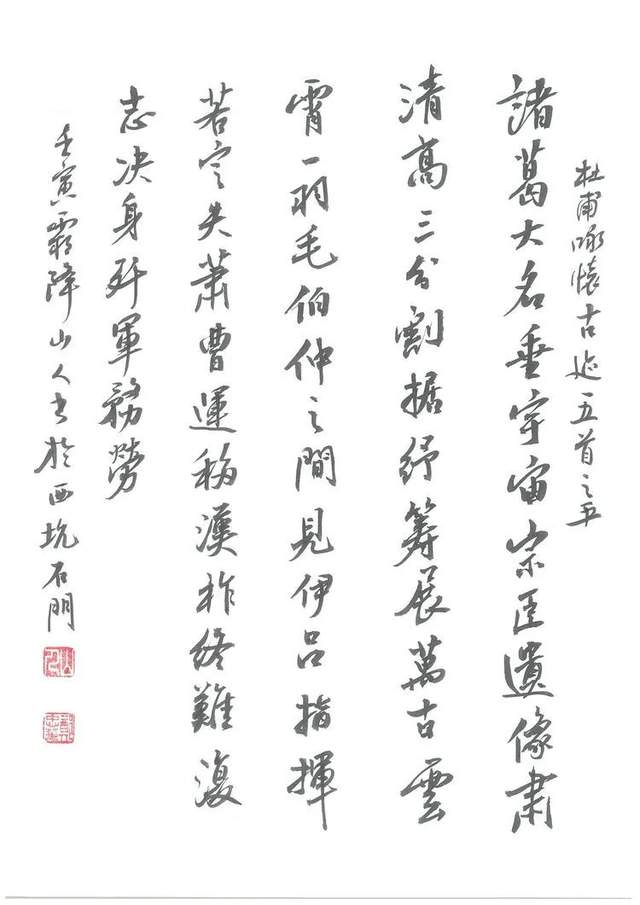 杜甫咏懷古迹五首之五
諸葛大名垂宇宙宗臣遺像肅
清高三分割据紓籌展萬古雲
霄一羽毛伯仲之間見伊呂指揮
若定失蕭曹運移漢祚終難復
志决身歼軍務勞
壬寅霜降山人书於西坑石門